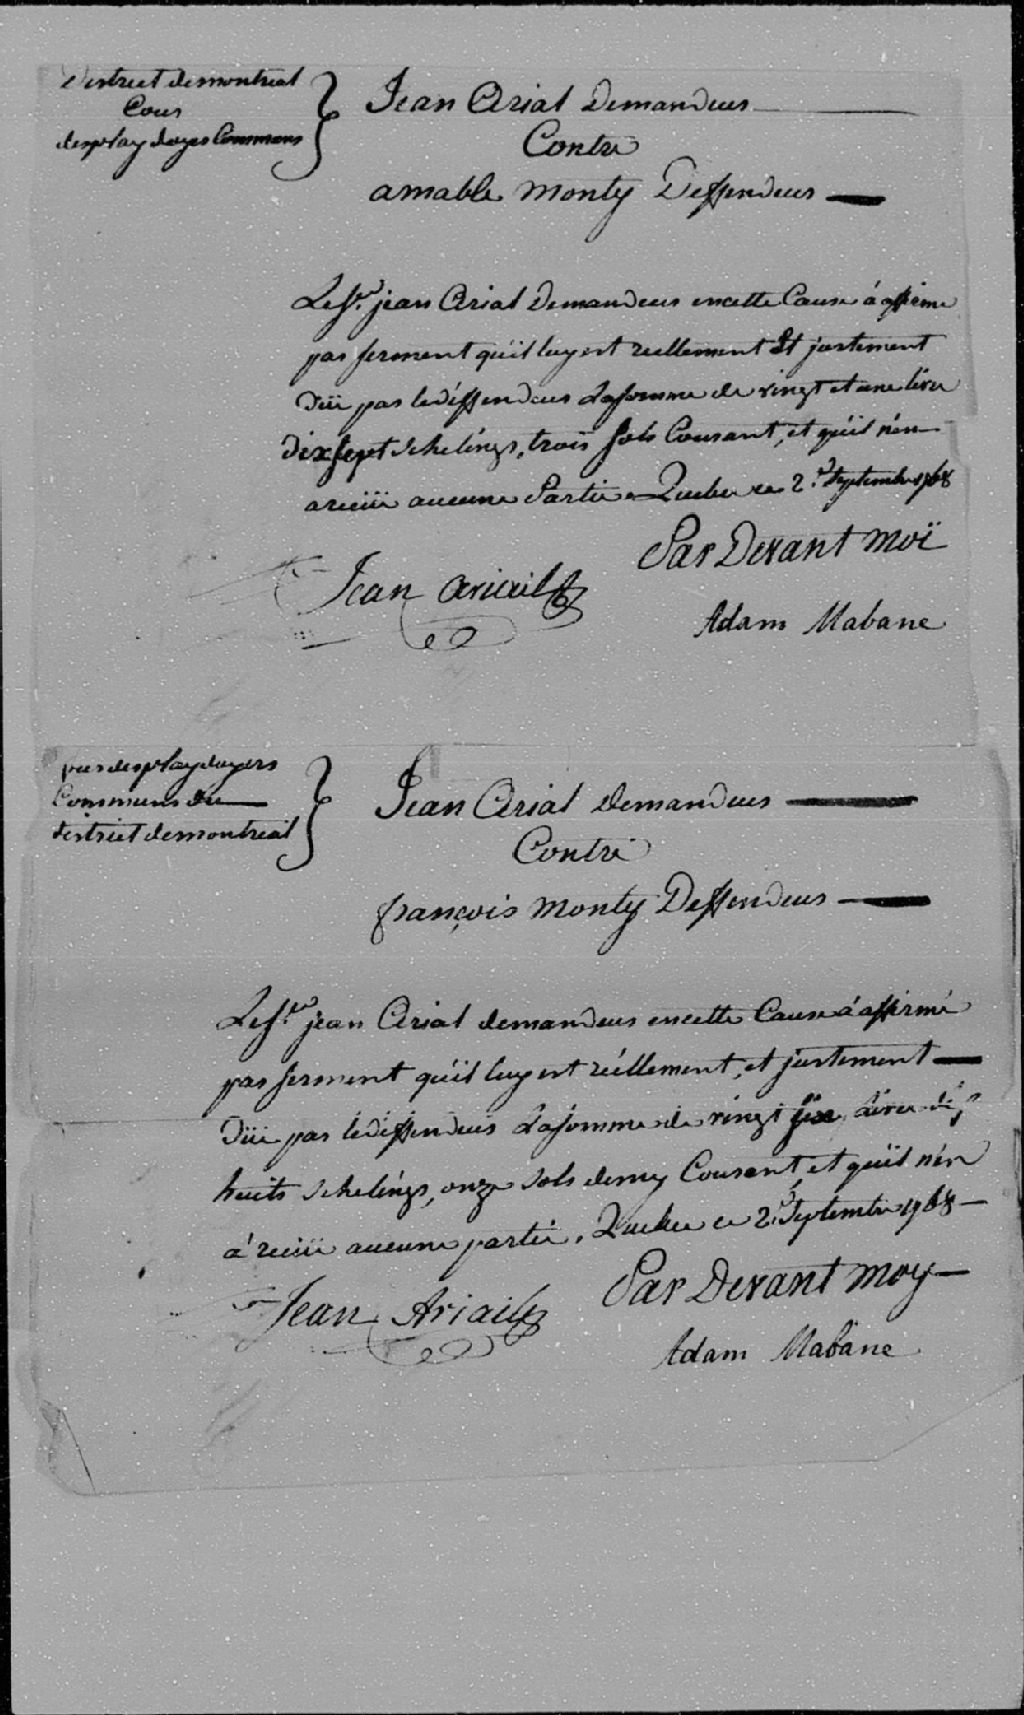 District demontreal
Cour
desplaydoyes Communs
Jean Ariat Demandeur
Contre
amable monty Deffendeur
Le Sr. jean Ariat Demandeur encette Cause á affirmé
par serment qu'il luy est reellement Et justement
Dûë par ledéffendeur Lasomme de vingt et une livre
dix sept schelings, trois sols Courant, et qu'il n'en
a reçüë aucune Partie. Quebec ce 2.d Septembre 1768
Par Devant Moï
Jean Ariail
Adam Mabane
desplaydoyers
Communs du
district demontreal
Jean Ariat demandeur
Contre
françois monty Deffendeur
Le Sr. jean Ariat demandeur encette Cause á affirmé
par serment qu'il luy est réellement, et justement
Dûë par ledéffendeur Lasomme de vingt six Livre dix
huits schelings, onze sols demy Courant, et qu'il n'en
á reçüë aucune partie. Quebec ce 2.d Septembre 1768
Par Devant Moy
Jean Ariail
Adam Mabane